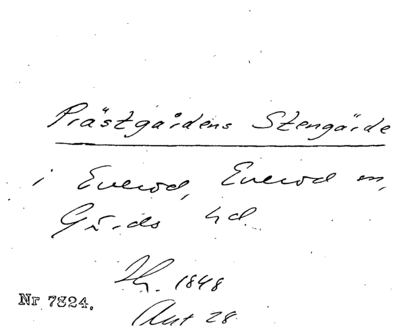 Prästgårdens Stengärde
i Everöd, Everöd sn,
Gärds hd.
Th. 1848
Nr 7824.
Ant 28